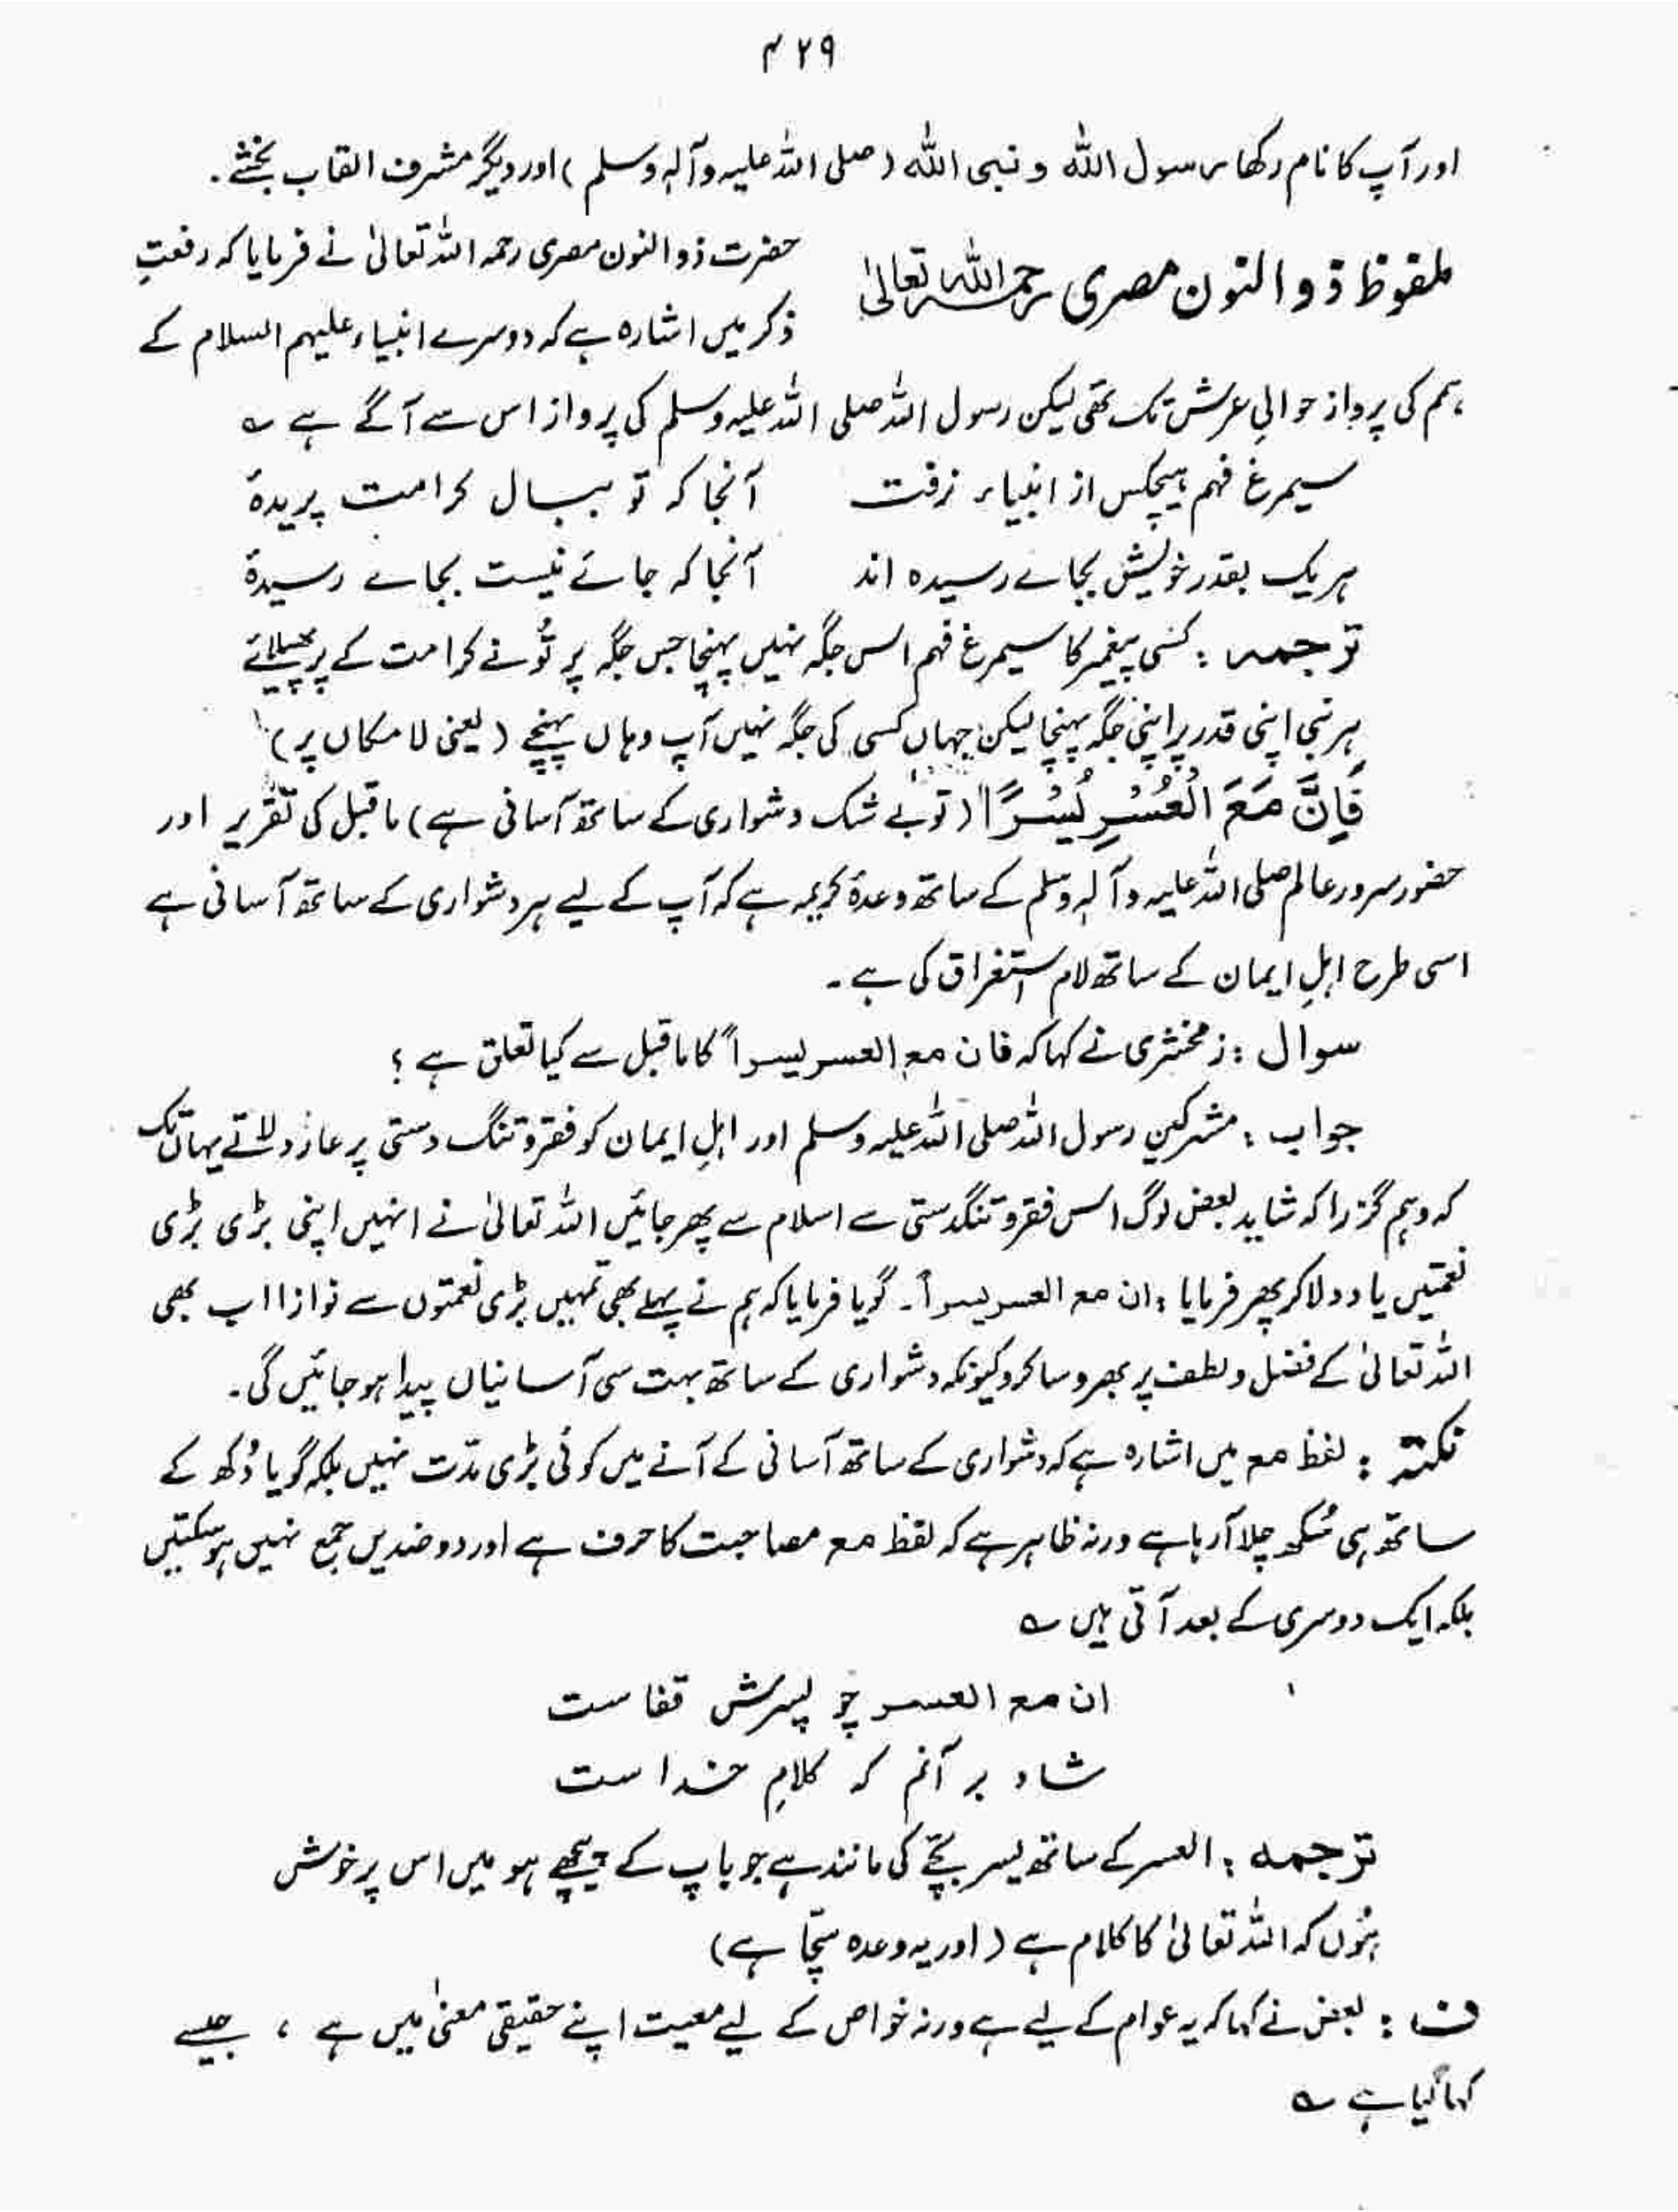 ۴۲۹
اور آپ کا نام رکھا رسول اللہ و نبی اللہ (صلی اللہ علیہ وآلہٖ وسلم) اور دیگر مشرف القاب بخشے۔
ملفوظ ذوالنون مصری رحمہ اللہ تعالیٰ
حضرت ذوالنون مصری رحمہ اللہ تعالیٰ نے فرمایا کہ رفعتِ
ذکر میں اشارہ ہے کہ دوسرے انبیاء علیہم السلام کے
ہم کی پرواز حوالیِ عرش تک تھی لیکن رسول اللہ صلی اللہ علیہ وسلم کی پرواز اس سے آگے ہے ؎
سیمرغ فہم ہیچکس از انبیاء نرفت آنجا کہ تو ببال کرامت پریدۂ
ہر یک بقدر خویش بجاے رسیدہ اند آنجا کہ جائے نیست بجاے رسیدۂ
ترجمہ : کسی پیغمبر کا سیمرغ فہم اس جگہ نہیں پہنچا جس جگہ پر تُو نے کرامت کے پر پھیلائے
ہر نبی اپنی قدر پر اپنی جگہ پہنچا لیکن جہاں کسی کی جگہ نہیں آپ وہاں پہنچے (یعنی لامکاں پر)
فَاِنَّ مَعَ الْعُسْرِ یُسْرًا (تو بے شک دشواری کے ساتھ آسانی ہے) ماقبل کی تقریر اور
حضور سرور عالم صلی اللہ علیہ وآلہٖ وسلم کے ساتھ وعدۂ کریمہ ہے کہ آپ کے لیے ہر دشواری کے ساتھ آسانی ہے
اسی طرح اہلِ ایمان کے ساتھ لام استغراق کی ہے۔
سوال : زمخشری نے کہا کہ فان مع العسر یسراً کا ماقبل سے کیا تعلق ہے ؟
جواب : مشرکین رسول اللہ صلی اللہ علیہ وسلم اور اہلِ ایمان کو فقر و تنگ دستی پر عار دلاتے یہاں تک
کہ وہم گزرا کہ شاید بعض لوگ اس فقر و تنگدستی سے اسلام سے پھر جائیں اللہ تعالیٰ نے انہیں اپنی بڑی بڑی
نعمتیں یاد دلا کر پھر فرمایا : ان مع العسر یسراً۔ گویا فرمایا کہ ہم نے پہلے بھی تمہیں بڑی نعمتوں سے نوازا اب بھی
اللہ تعالیٰ کے فضل و لطف پر بھروسا کرو کیونکہ دشواری کے ساتھ بہت سی آسانیاں پیدا ہو جائیں گی۔
نکتہ : لفظ مع میں اشارہ ہے کہ دشواری کے ساتھ آسانی کے آنے میں کوئی بڑی مدّت نہیں بلکہ گویا دُکھ کے
ساتھ ہی سُکھ چلا آ رہا ہے ورنہ ظاہر ہے کہ لفظ مع مصاحبت کا حرف ہے اور دو ضدیں جمع نہیں ہو سکتیں
بلکہ ایک دوسری کے بعد آتی ہیں ؎
ان مع العسر چو پسرش قفاست
شاد بر آنم کہ کلامِ خداست
ترجمہ : العسر کے ساتھ یسر بچّے کی مانند ہے جو باپ کے پیچھے ہو میں اس پر خوش
ہُوں کہ اللہ تعالیٰ کا کلام ہے (اور یہ وعدہ سچّا ہے)
ف : بعض نے کہا کہ یہ عوام کے لیے ہے ورنہ خواص کے لیے معیت اپنے حقیقی معنیٰ میں ہے ، جیسے
کہا گیا ہے ؎